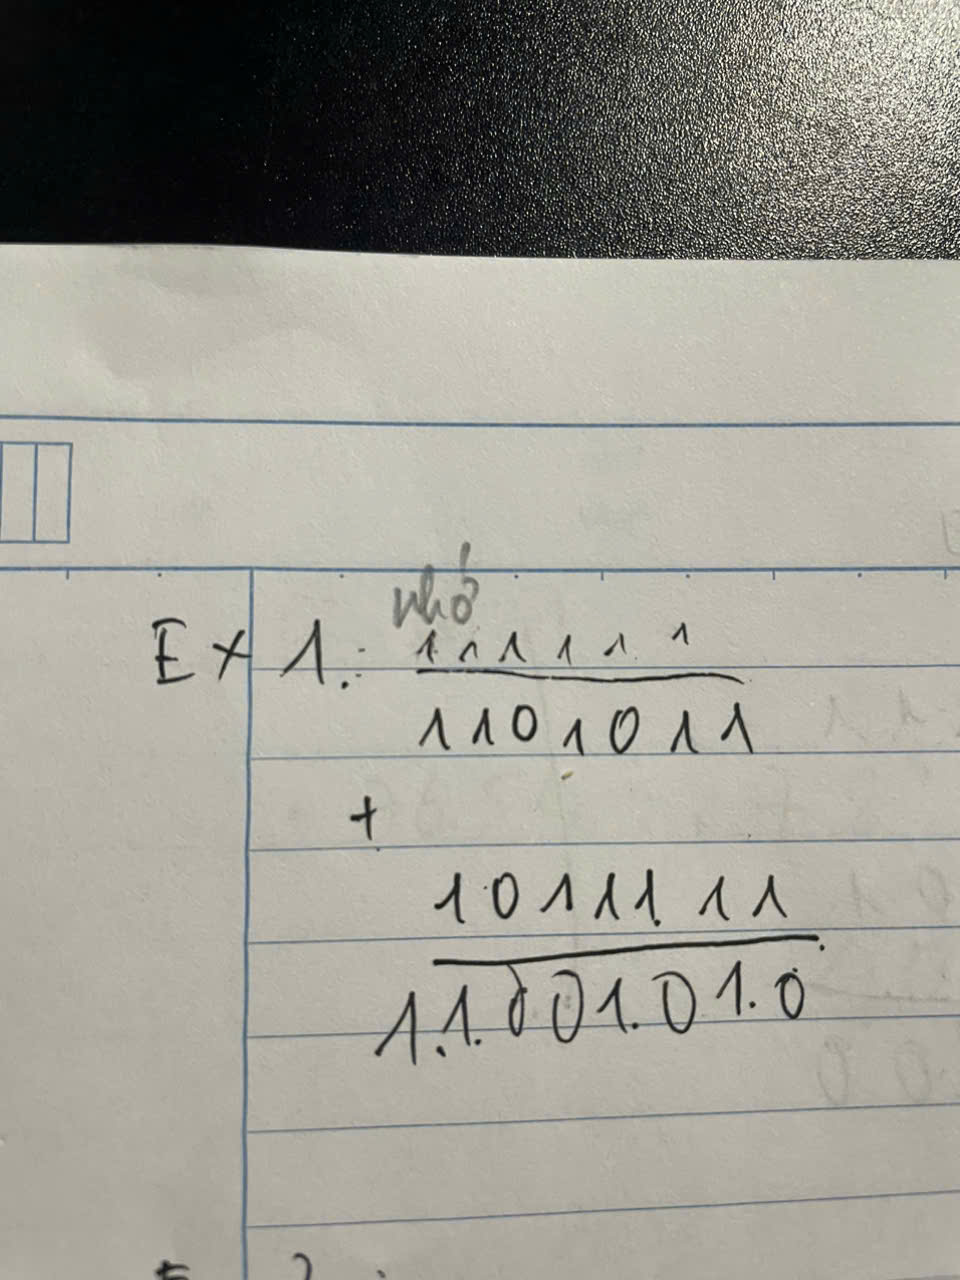 nhớ
Ex 1: 1 1 1 1 1 1
1101011
+
1011111
1.1.001.01.0